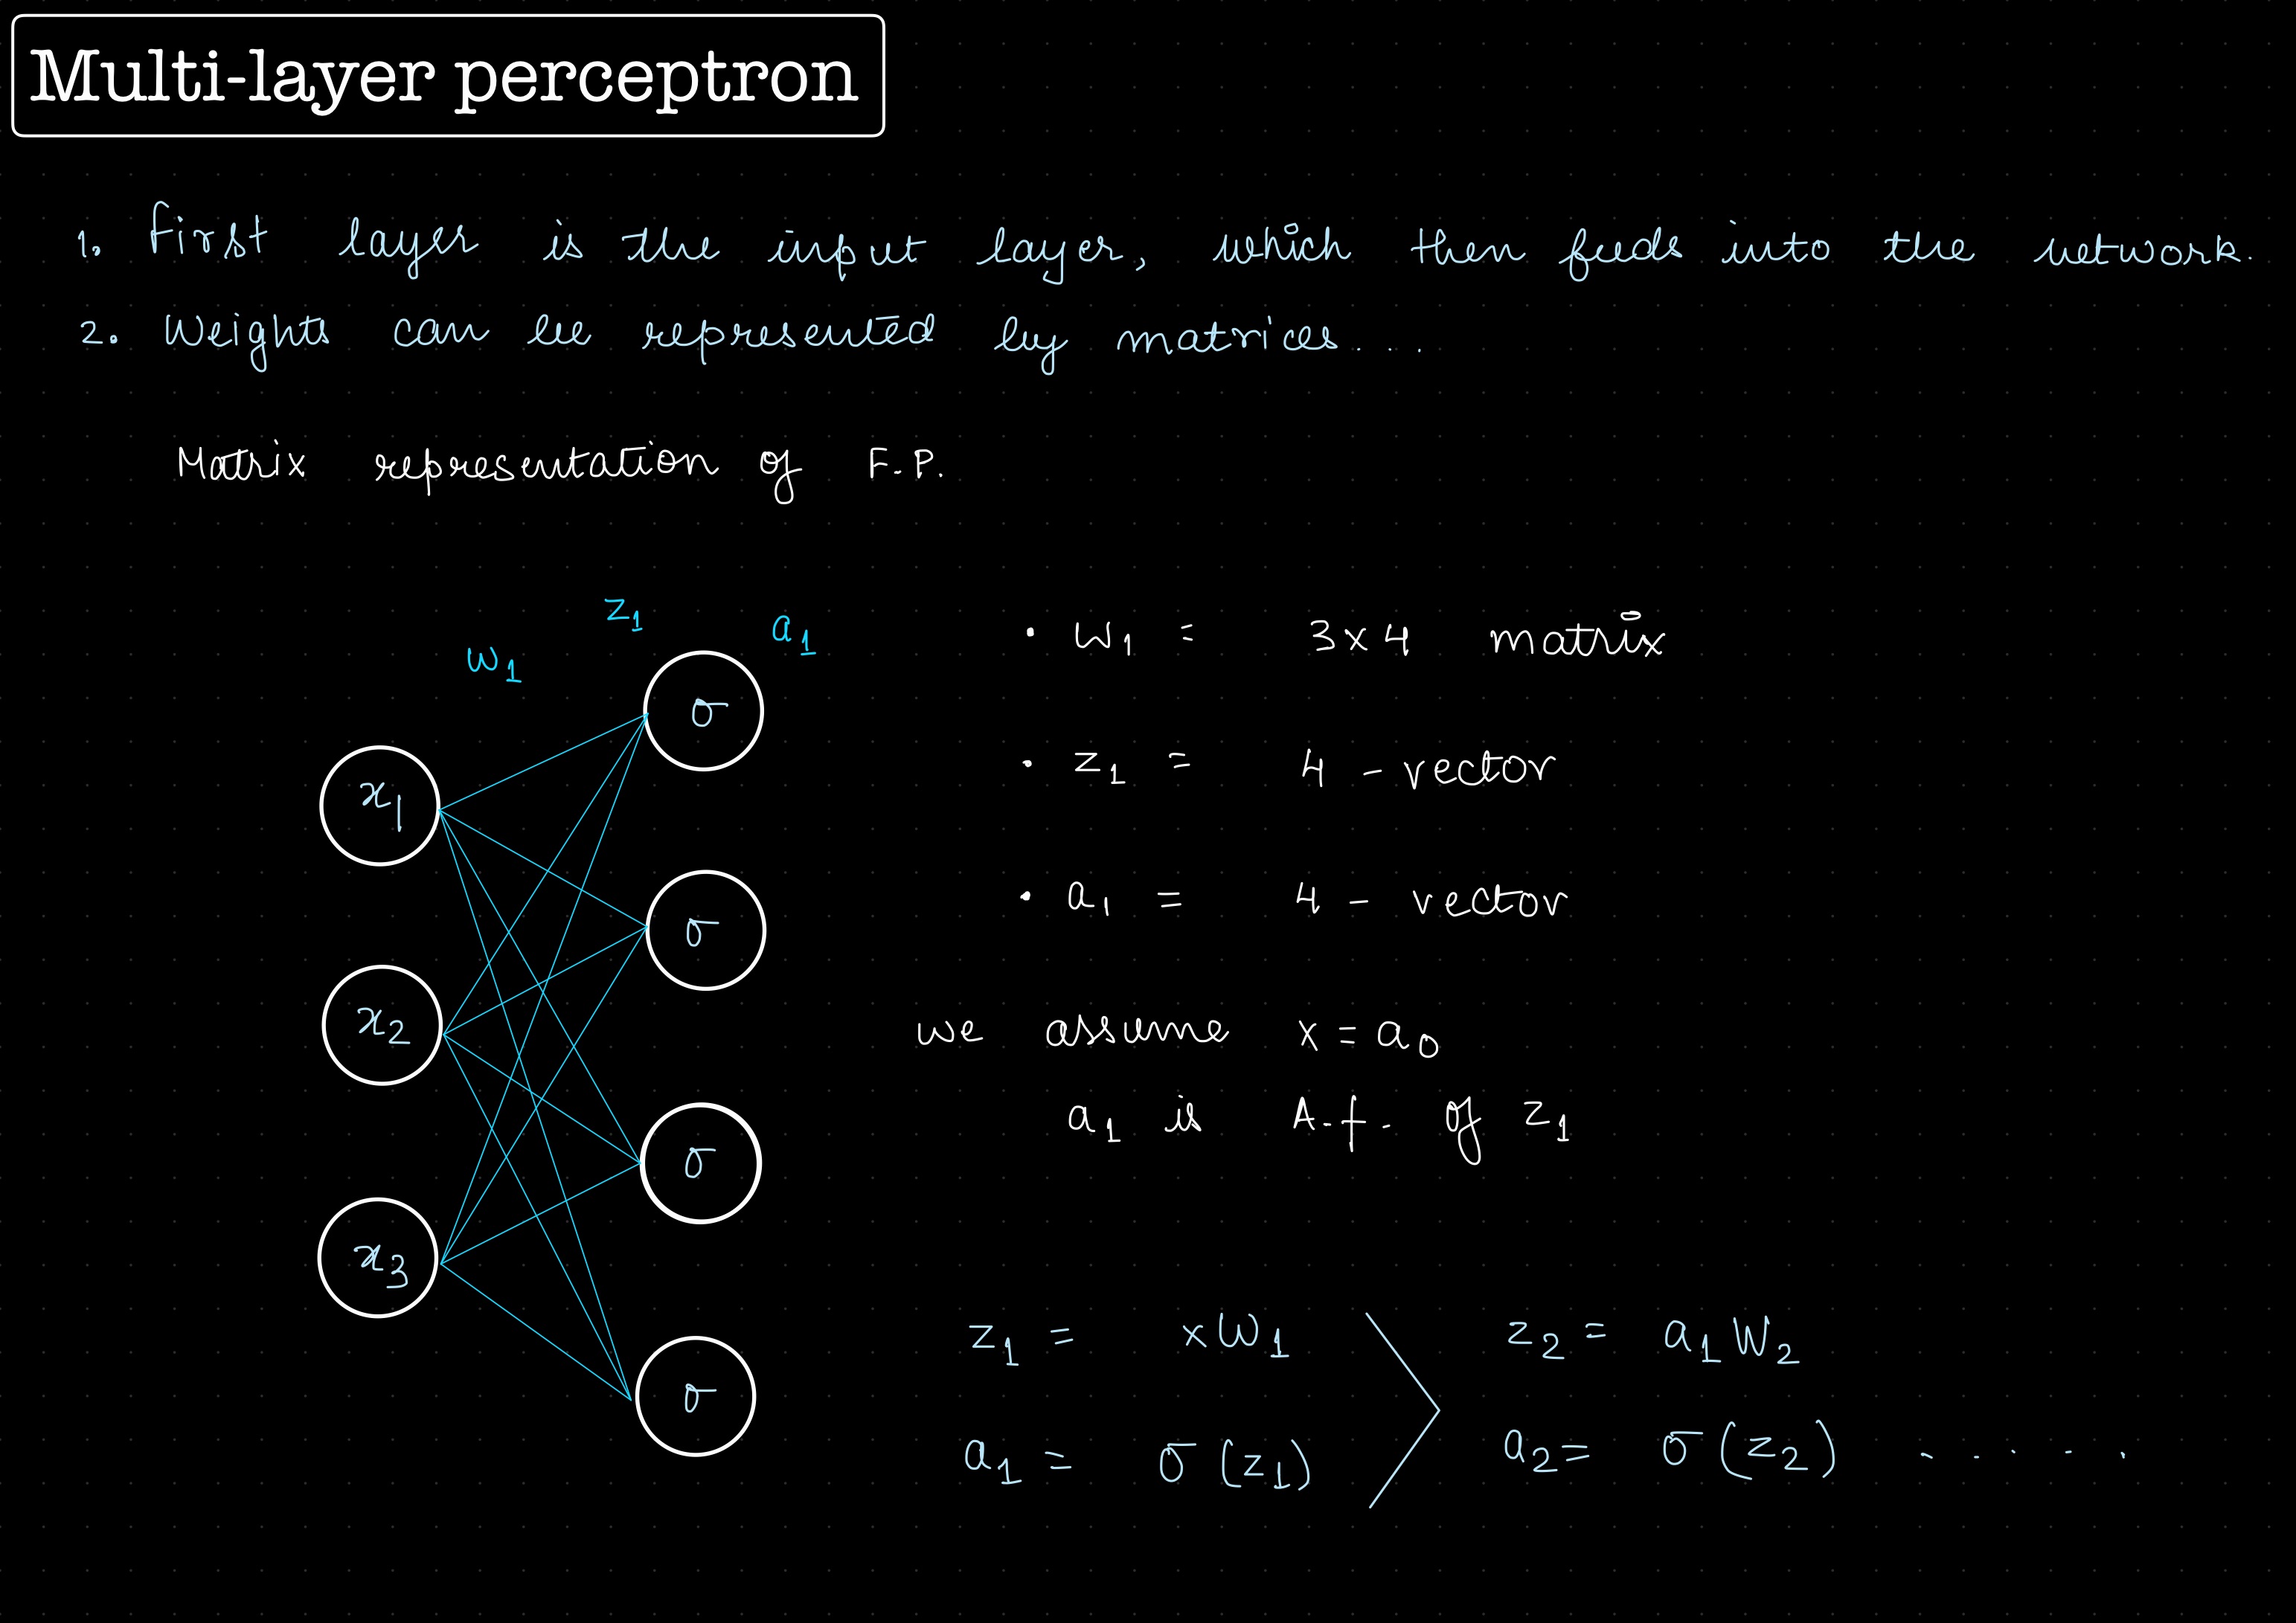 Multi-layer perceptron
1. First layer is the input layer, which then feeds into the network.
2. Weights can be represented by matrices...
Matrix representation of F.P.
z₁
a₁
w₁
σ
x₁
σ
x₂
σ
x₃
σ
• W₁ = 3x4 matrix
• z₁ = 4 - vector
• a₁ = 4 - vector
we assume x = a₀
a₁ is A.f. of z₁
z₁ = xW₁
a₁ = σ(z₁)
z₂ = a₁W₂
a₂ = σ(z₂) .....